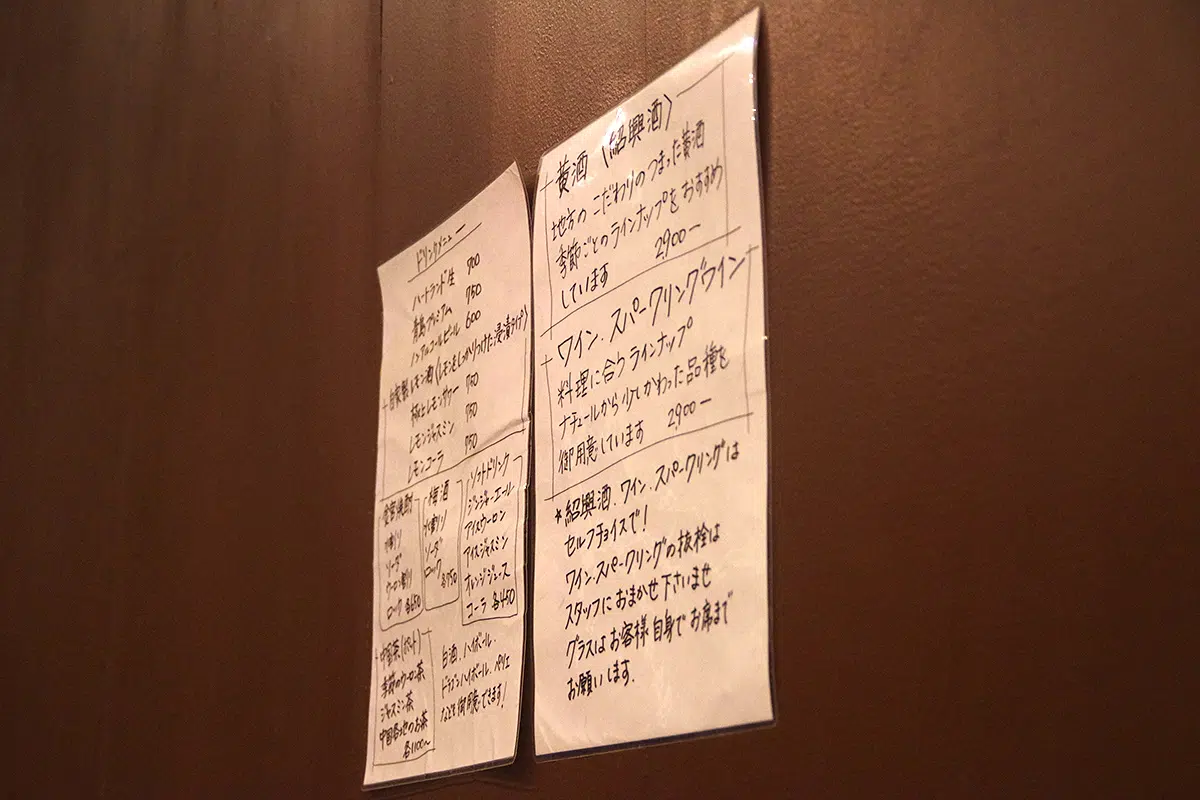 ドリンクメニュー
ハートランド生 700
青島プレミアム 750
ノンアルコールビール 600
自家製レモン酒(レモンをしっかりつけた浸漬タイプ)
極上レモンサワー 750
レモンジャスミン 750
レモンコーラ 750
焼酎
水割り
ソーダ
ウーロン割り
ロック 各650
梅酒
水割り
ソーダ
ロック
各750
ソフトドリンク
ジンジャーエール
アイスウーロン
アイスジャスミン
オレンジジュース
コーラ 各450
中国茶(ポット)
季節のウーロン茶
ジャスミン茶
中国各地のお茶
各1100~
白酒、ハイボール、
ドラゴンハイボール、ペリエ
なども御用意できます!
黄酒(紹興酒)
地方のこだわりのつまった黄酒
季節ごとのラインナップをおすすめ
しています 2,900ー
ワイン、スパークリングワイン
料理に合うラインナップ
ナチュールから少しかわった品種を
御用意しています 2,900ー
*紹興酒、ワイン、スパークリングは
セルフチョイスで!
ワイン、スパークリングの抜栓は
スタッフにおまかせ下さいませ
グラスはお客様自身でお席まで
お願いします。